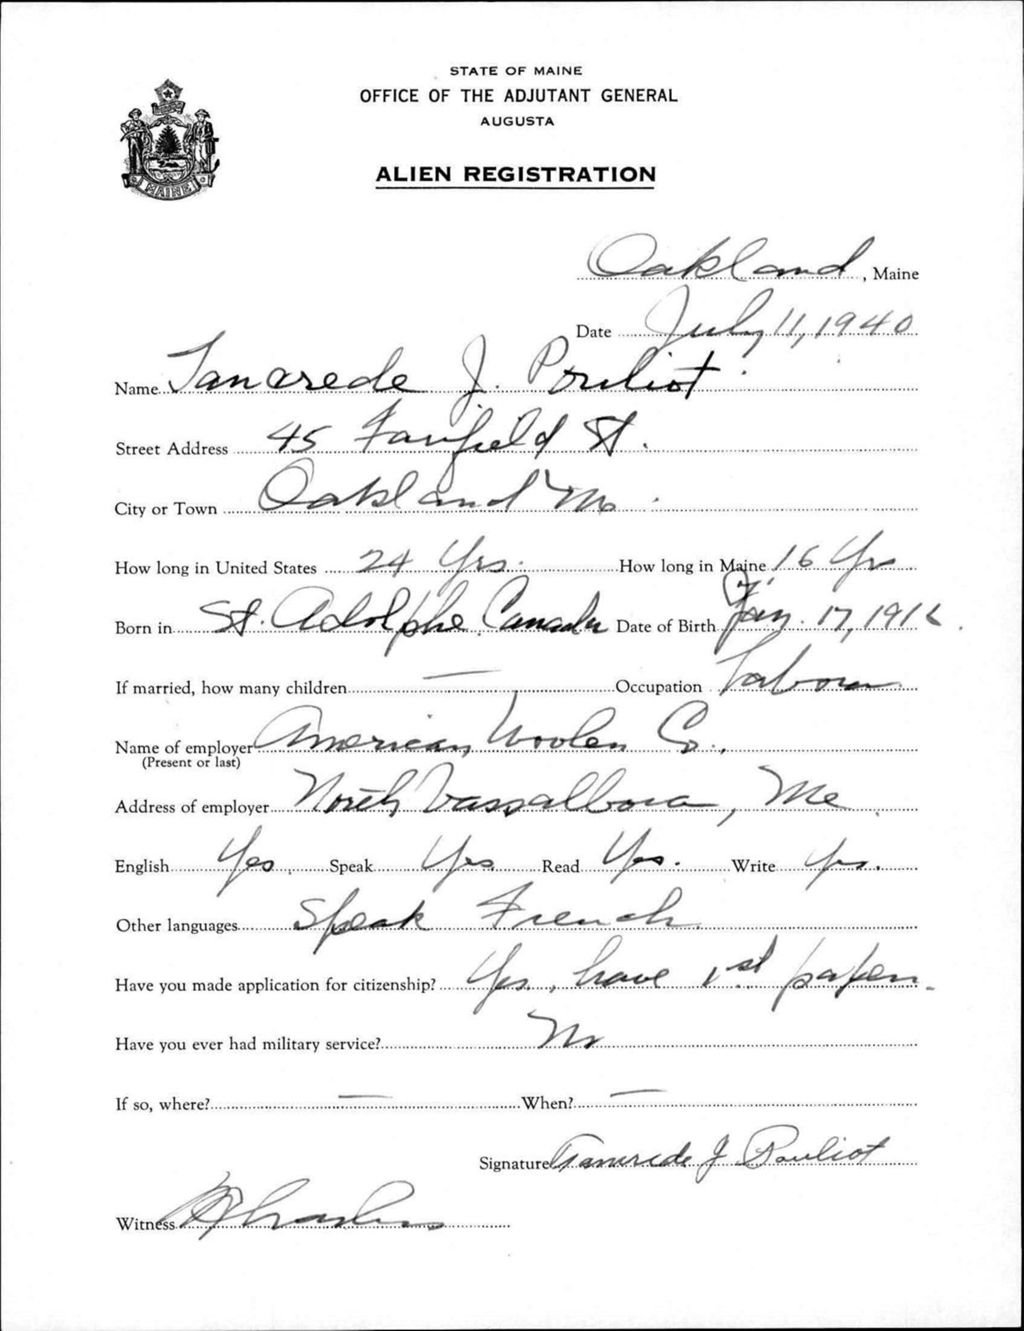 STATE OF MAINE
OFFICE OF THE ADJUTANT GENERAL
AUGUSTA
ALIEN REGISTRATION
MAINE
Oakland, Maine
Date July 11, 1940
Name Tancrede J. Pouliot
Street Address 45 Fairfield St.
City or Town Oakland Me
How long in United States 24 Yrs. How long in Maine 16 Yrs
Born in St. Adolphe, Canada Date of Birth Jan. 17, 191
If married, how many children — Occupation Laborer
Name of employer American Woolen Co.,
(Present or last)
Address of employer North Vassalboro, Me
English Yes. Speak Yes. Read Yes. Write Yes.
Other languages Speak French
Have you made application for citizenship? Yes, have 1st papers.
Have you ever had military service? No
If so, where? — When? —
Signature Tancrede J Pouliot
Witness